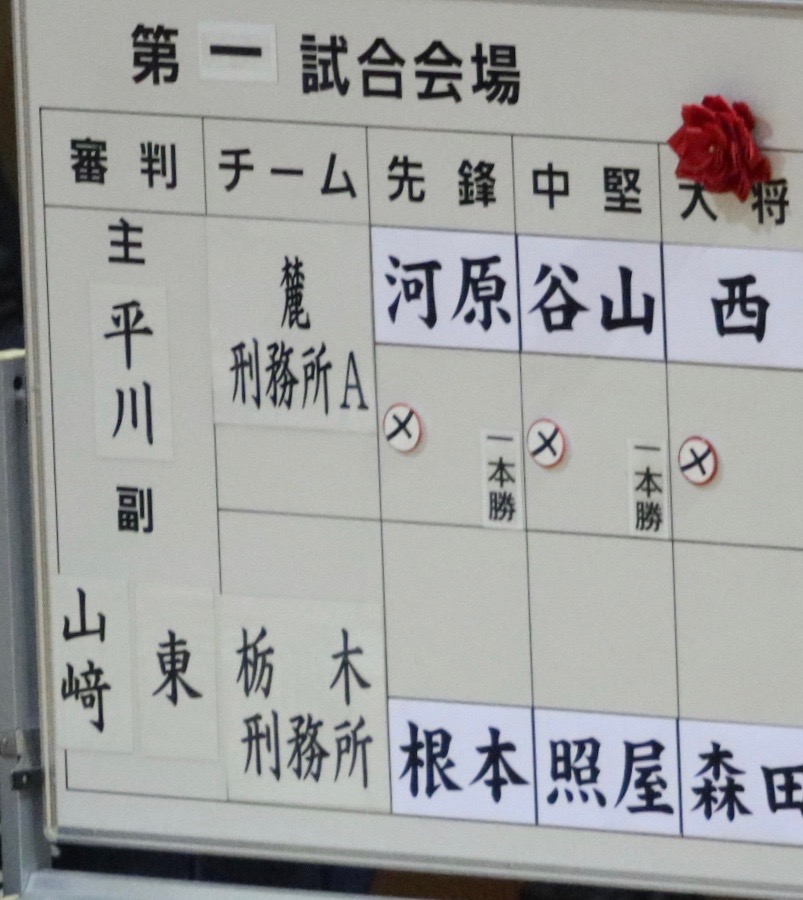 第一試合会場
審判 チーム 先鋒 中堅 大将
主
平川
副
山﨑 東
麓
刑務所A
河原 谷山 西
メ メ メ
一本勝 一本勝
栃木
刑務所
根本 照屋 森田